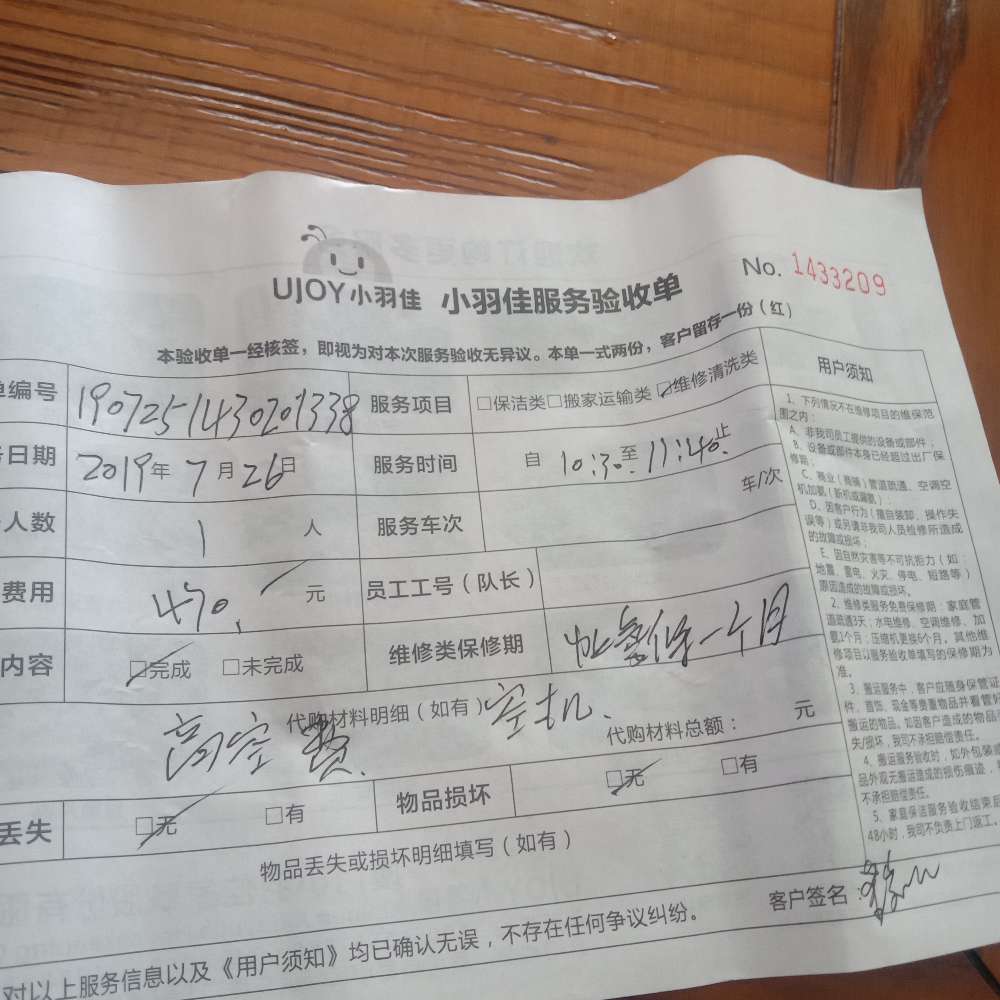 No. 1433209
UJOY小羽佳 小羽佳服务验收单
本验收单一经核签，即视为对本次服务验收无异议。本单一式两份，客户留存一份（红）
单编号 1907251430201338 服务项目 □保洁类□搬家运输类☑维修清洗类
日期 2019年7月26日 服务时间 自 10:30至11:40止
人数 1 人 服务车次 车/次
费用 470. 元 员工工号（队长）
内容 ☑完成 □未完成 维修类保修期 保一个月
代购材料明细（如有） 空机、
高空费、 代购材料总额： 元
丢失 ☑无 □有 物品损坏 ☑无 □有
物品丢失或损坏明细填写（如有）
客户签名：
对以上服务信息以及《用户须知》均已确认无误，不存在任何争议纠纷。
用户须知
1、下列情况不在维修项目的维保范
围之内：
A、非我司员工提供的设备或部件；
B、设备或部件本身已经超过出厂保
修期；
C、商业（商铺）管道疏通、空调空
机加氨（新机或漏氨）；
D、因客户行为（擅自装卸、操作失
误等）或另请非我司人员检修所造成
的故障或损坏；
E、因自然灾害等不可抗拒力（如：
地震、雷电、火灾、停电、短路等）
原因造成的故障或损坏。
2、维修类服务免费保修期：家庭管
道疏通3天；水电维修、空调维修、加
氨1个月；压缩机更换6个月。其他维
修项目以服务验收单填写的保修期为
准。
3、搬运服务中，客户应随身保管证
件、首饰、现金等贵重物品并看管好
搬运的物品。如因客户造成的物品
失/损坏，我司不承担赔偿责任。
4、搬运服务验收时，如外包装或
品外观无搬运造成的损伤痕迹，
不承担赔偿责任。
5、家庭保洁服务验收结束后
48小时，我司不负责上门返工。